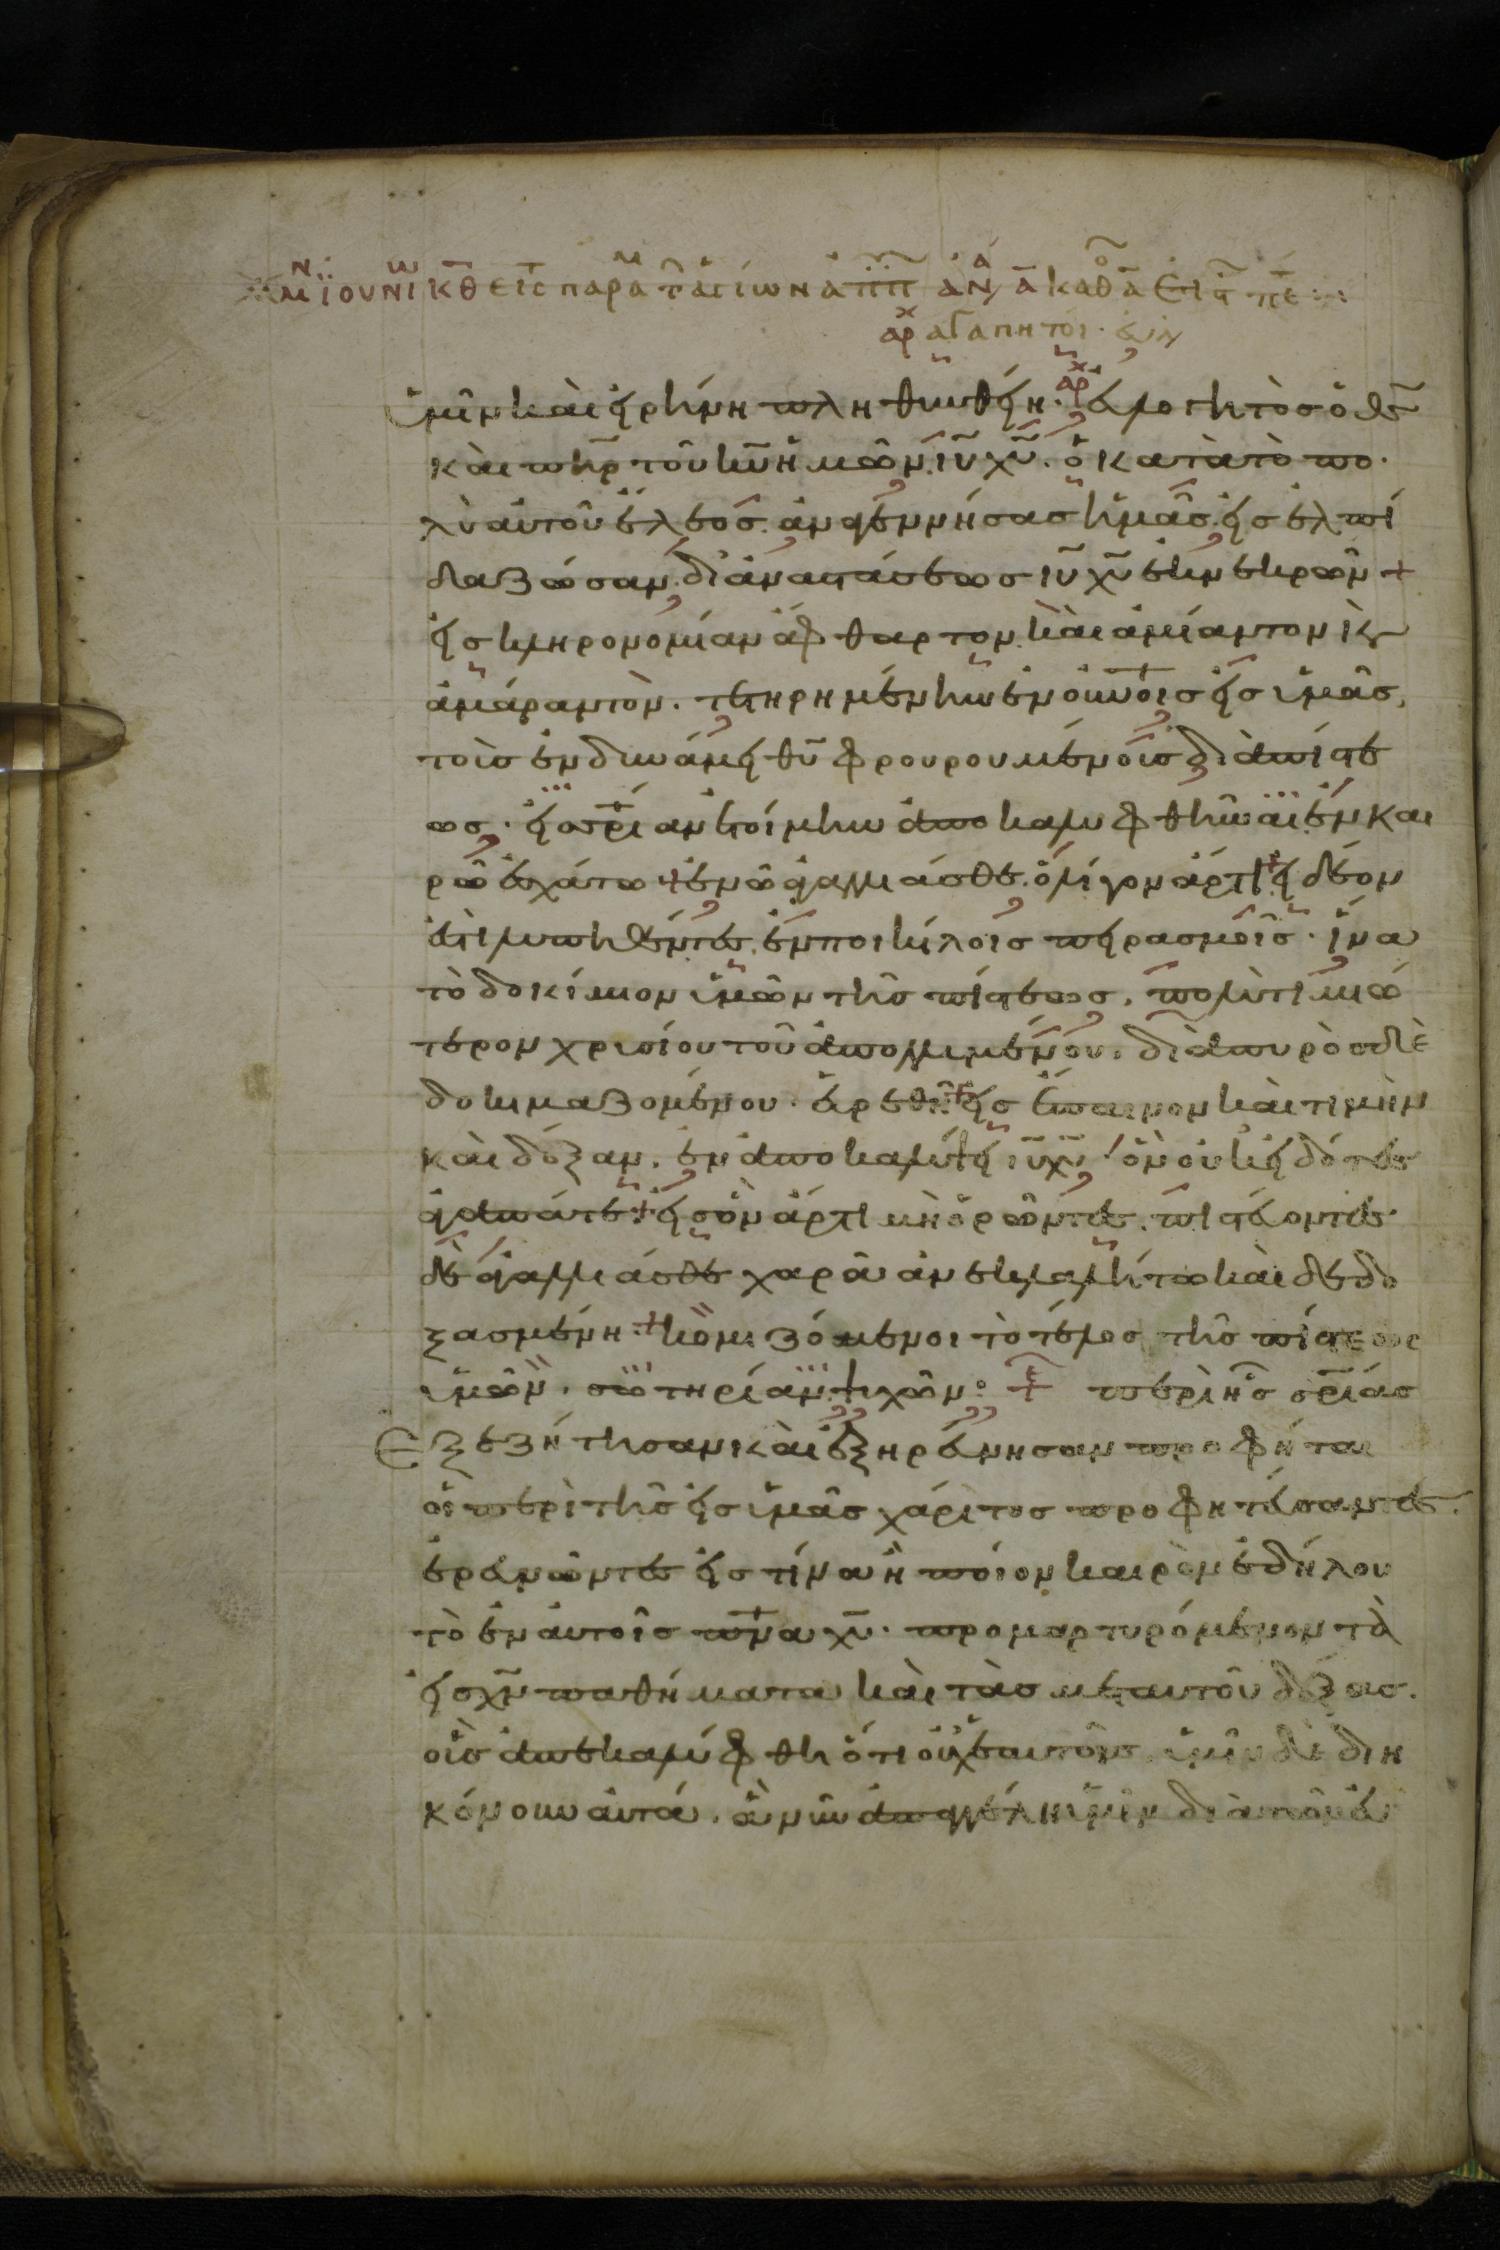 μην ϊουνιω κθ εις παραμ των αγιων απ
αρχ αγαπητοι
ὑμῖν καὶ εἰρήνη πληθυνθείη. εὐλογητὸς ὁ θς
καὶ πηρ τοῦ κυ ἡμῶν ιυ χυ. ὁ κατὰ τὸ πο
λὺ αὐτοῦ ἔλεος ἀναγεννήσας ἡμᾶς εἰς ἐλπί
δα ζῶσαν, δι ἀναστάσεως ιυ χυ ἐκ νεκρῶν
εἰς κληρονομίαν ἄφθαρτον καὶ ἀμίαντον κ
ἀμάραντον. τετηρημένην ἐν οὐνοις εἰς ὑμᾶς,
τοὺς ἐν δυνάμει θυ φρουρουμένοις διὰ πίστε
ως. εἰς σριαν ἑτοίμην ἀποκαλυφθῆναι ἐν και
ρῶ ἐσχάτω ἐν ᾧ ἀγαλλιάσθε. ὀλίγον ἄρτι εἰ δέον
ἐστὶ λυπηθέντες ἐν ποικίλοις πειρασμοῖς. ἵνα
τὸ δοκίμιον ὑμῶν τῆς πίστεως, πολὺ τιμιώ
τερον χρυσίου τοῦ ἀπολλυμένου, διὰ πυρὸς δὲ
δοκιμαζομένου. εὑρεθῆ εἰς ἔπαινον καὶ τιμὴν
καὶ δόξαν, ἐν ἀποκαλύψει ιυ χυ ὃν οὐκ εἰδότες
ἀγαπάτε. εἰς ὃν ἄρτι μὴ ὁρῶντες, πιστεύοντες
δὲ ἀγαλλιάσθε χαρᾶ ἀνεκλαλήτω καὶ δεδο
ξασμένη. κομιζόμενοι τὸ τέλος τῆς πίστεως
ὑμῶν, σωτηρίαν ψυχῶν. περὶ ἧς σριάς
Εξεζήτησαν καὶ ἐξηρεύνησαν προφήται
οἱ περὶ τῆς εἰς ὑμᾶς χάριτος προφητεύσαντες.
ἐρευνῶντες εἰς τίνα ἢ ποῖον καιρὸν ἐδήλου
τὸ ἐν αὐτοῖς πνα χυ. προμαρτυρόμενον τὰ
εἰς χν παθήματα καὶ τὰς μεταυτοῦ δόξας.
οἷς ἀπεκαλύφθη ὅτι οὐχ ἑαυτοῖς ὑμῖν δὲ διη
κόνουν αὐτά. ἃ νῦν ἀπηγγέλη ὑμῖν διὰ τῶν εὐ